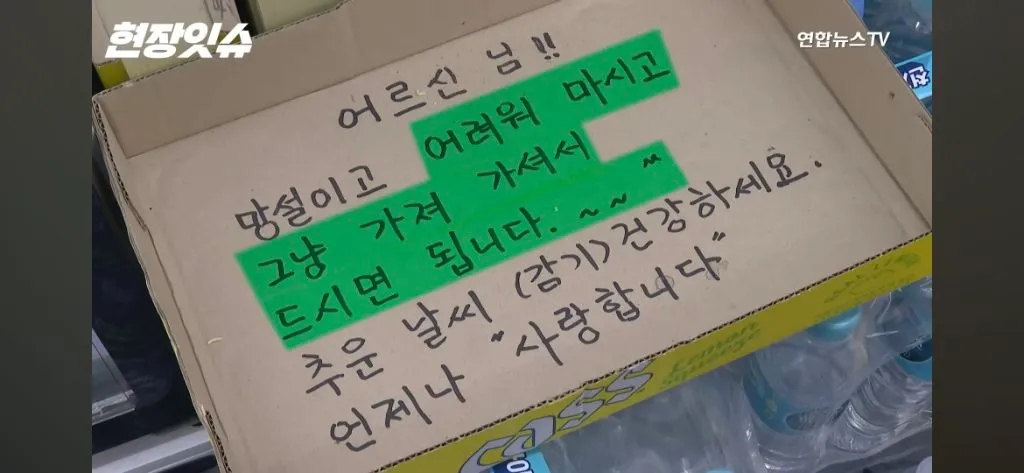 현장잇슈
연합뉴스TV
어르신 님!!
망설이고 어려워 마시고
그냥 가져 가셔서
드시면 됩니다.~~~
추운 날씨 (감기) 건강하세요.
언제나 "사랑합니다"
CASS
Lemon
Squeeze